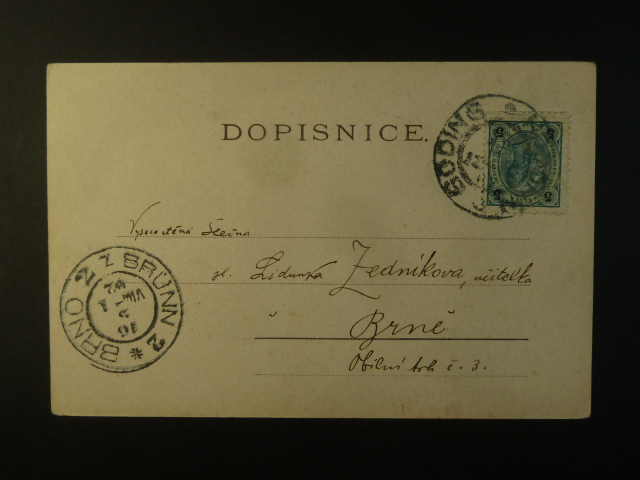 DOPISNICE.
GÖDING
5 5
5 5
Vysoce ctěná slečna
sl. Lidunka Zedníkova, učitelka
v
Brně
Obilní trh č. 3.
BRNO 2 * BRÜNN 2